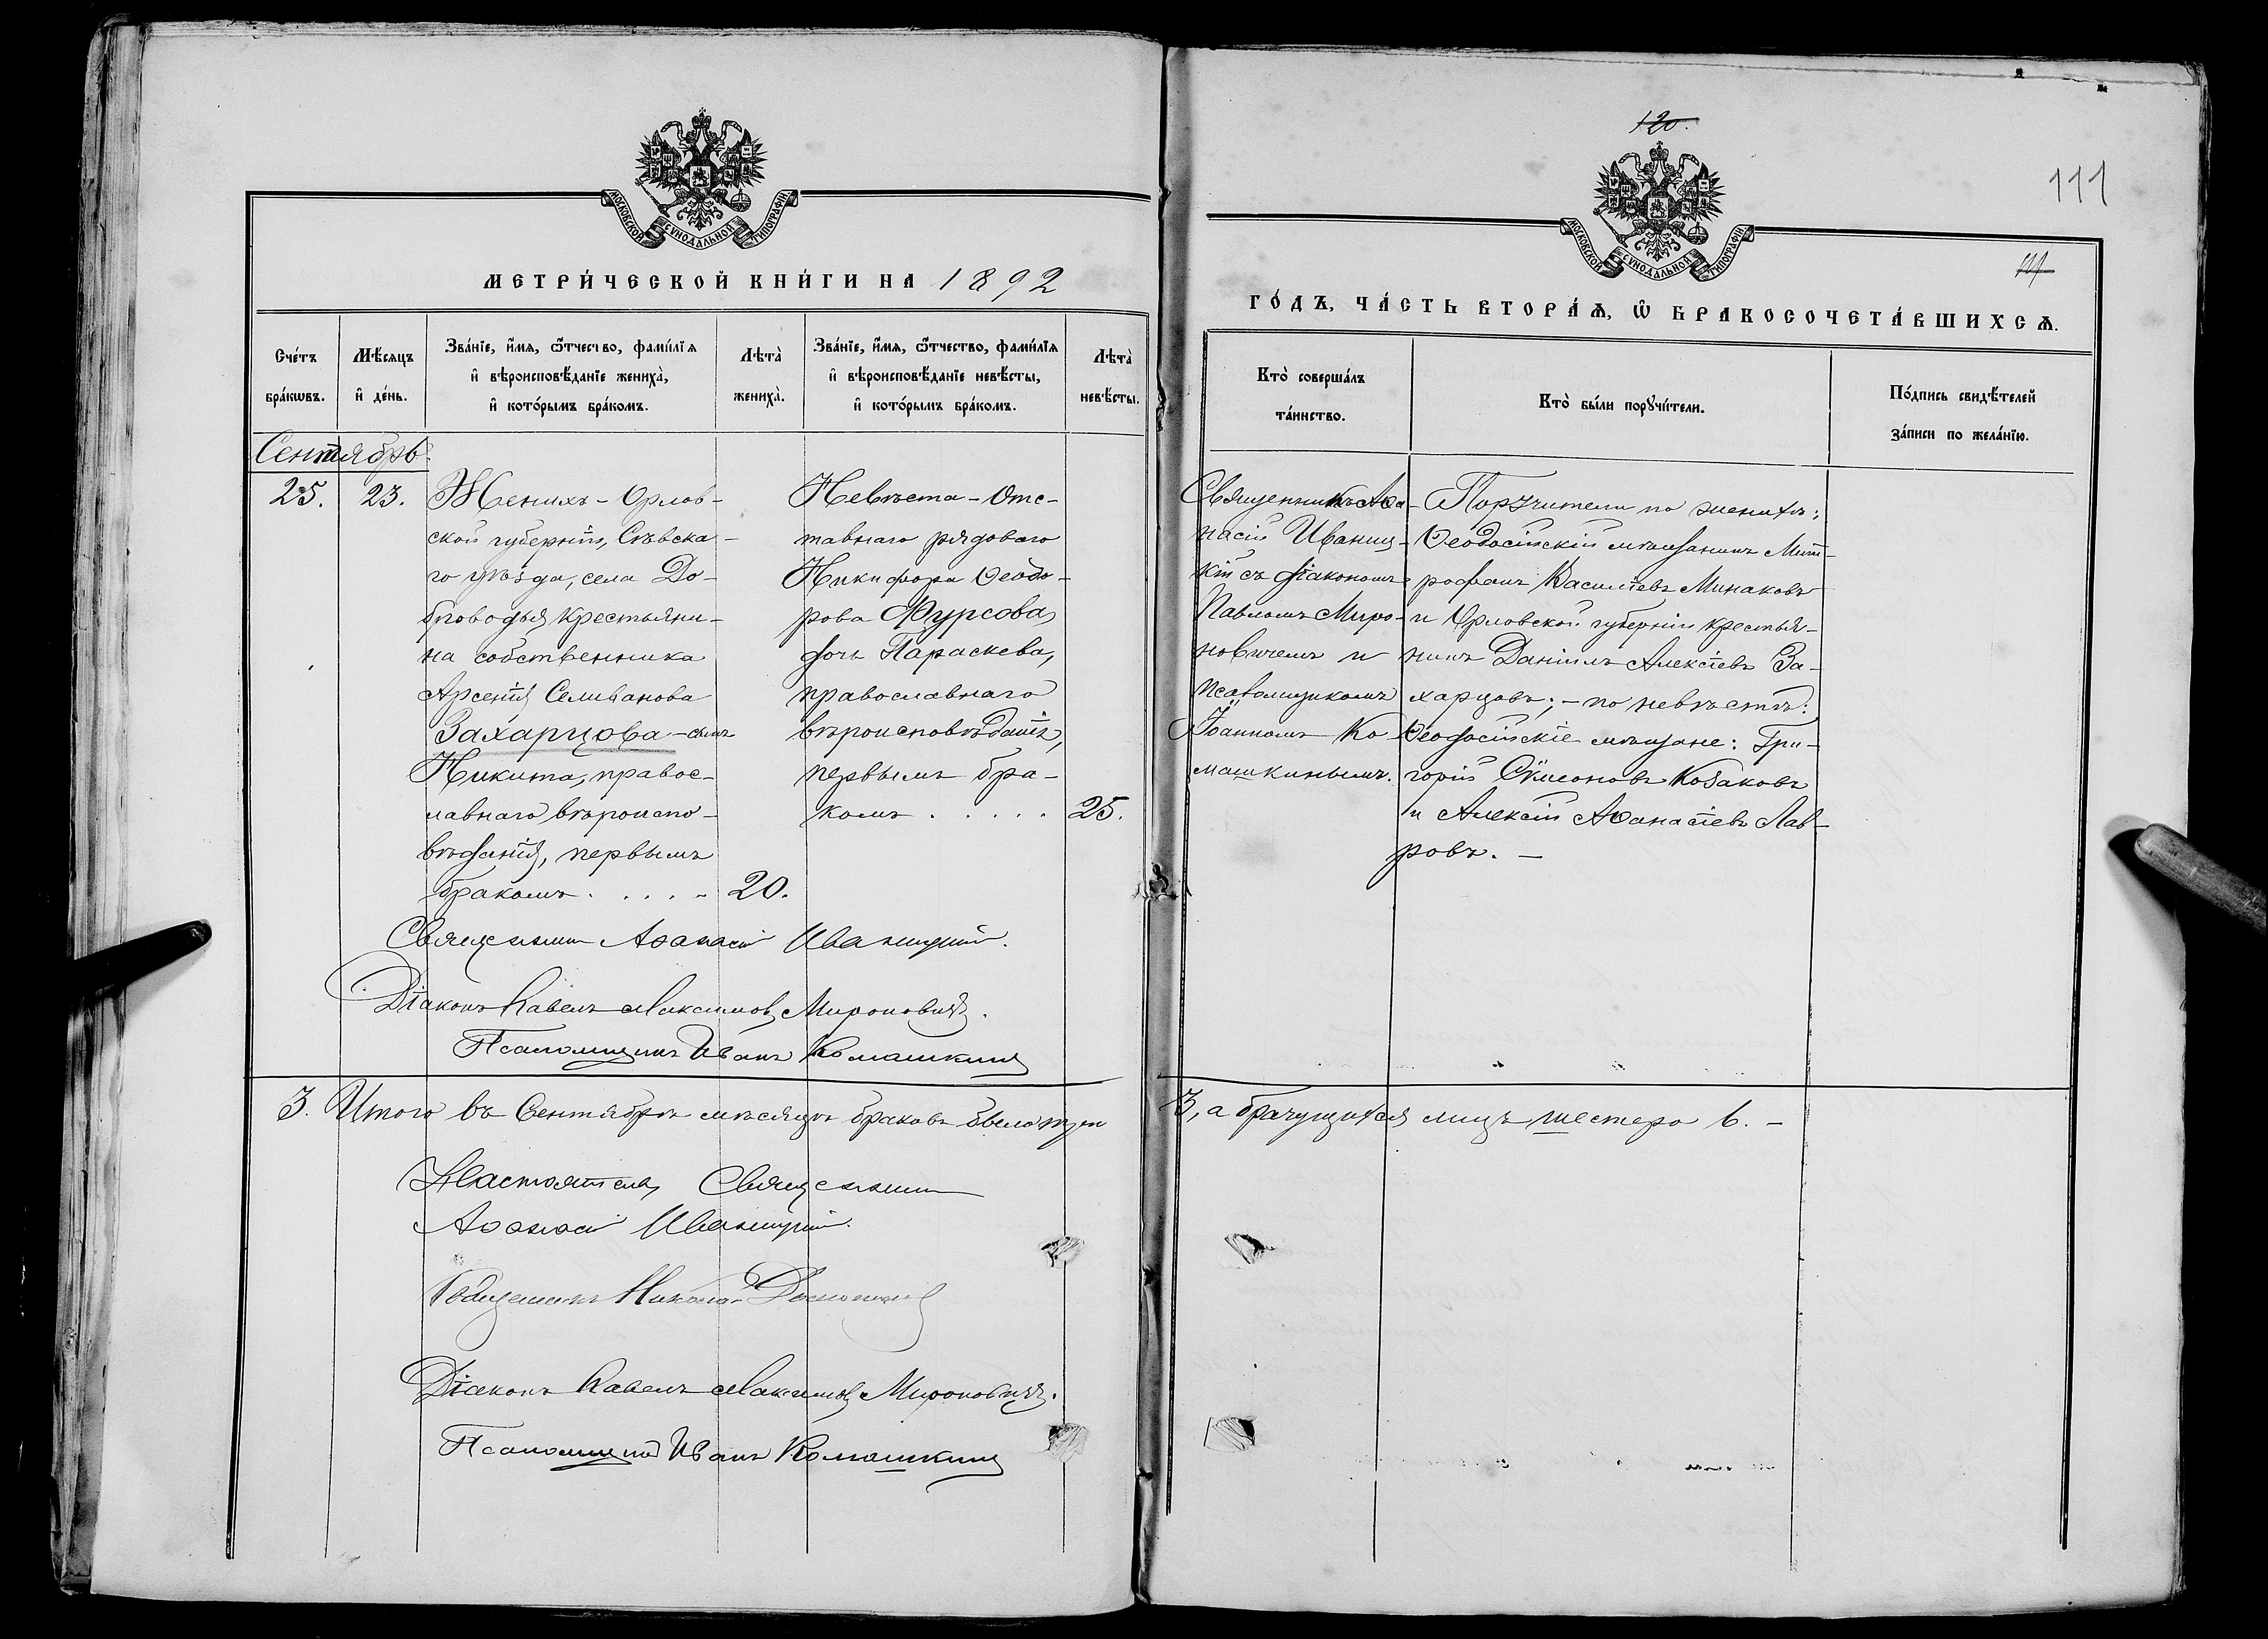 МОСКОВСКОЙ СѴНОДАЛЬНОЙ ТИПОГРАФІИ
МЕТРИ́ЧЕСКОЙ КНИ́ГИ НА 1892
Сче́тъ бра́кωвъ.
Мѣ́сяцъ и҆ де́нь.
Зва́нїе, и҆́мѧ, ѿтчество, фами́лїѧ
и҆ вѣроисповѣ́данїе жениха̀,
и҆ кото́рымъ бра́комъ.
Лѣта̀ жениха̀.
Зва́нїе, и҆́мѧ, ѿтчество, фами́лїѧ
и҆ вѣроисповѣ́данїе невѣ́сты,
и҆ кото́рымъ бра́комъ.
Лѣта̀ невѣ́сты.
Сентябрь.
25.
23.
Женихъ - Орлов-
ской губерніи, Сѣвска-
го уѣзда, села До-
броводья крестьяни-
на собственника
Арсенія Селиванова
Захарцова - сынъ
Никита, правос-
лавнаго вѣроиспо-
вѣданія, первымъ
бракомъ . . . . . 20.
Невѣста - Отс-
тавнаго рядоваго
Никифора Ѳеодо-
рова Фурсова
дочь Параскева,
православнаго
вѣроисповѣданія,
первымъ бра-
комъ . . . . . 25.
Священникъ Аѳанасій Иваницкій.
Діаконъ Павелъ Максимовъ Мироновичъ.
Псаломщикъ Иванъ Комашкинъ
3. Итого въ Сентябрѣ мѣсяцѣ браковъ было три
Настоятель, Священникъ
Аѳанасій Иваницкій.
Священникъ Николай
Діаконъ Павелъ Максимовъ Мироновичъ.
Псаломщикъ Иванъ Комашкинъ
120.
111
МОСКОВСКОЙ СѴНОДАЛЬНОЙ ТИПОГРАФІИ
ГО́ДЪ, ЧА́СТЬ ВТОРА́Ѧ, Ѡ҆ БРАКОСОЧЕТА́ВШИХСѦ.
Кто̀ соверша́лъ
та́инство.
Кто̀ бы́ли порꙋчи́тели.
По́дпись свидѣ́телей
за́писи по жела́нїю.
Священникъ Аѳа-
насій Иваниц-
кій съ діакономъ
Павломъ Миро-
новичемъ и
псаломщикомъ
Іоанномъ Ко-
машкинымъ.
Поручители по женихѣ:
Ѳеодосійскій мѣщанинъ Мит-
рофанъ Василіевъ Минаковъ
и Орловской губерніи крестья-
нинъ Даніилъ Алексіевъ За-
харцовъ; - по невѣстѣ:
Ѳеодосійскіе мѣщане: Гри-
горій Сѵмеоновъ Козаковъ
и Алексій Аѳанасіевъ Лав-
ровъ. -
3, а брачущихся лицъ шестеро 6. -